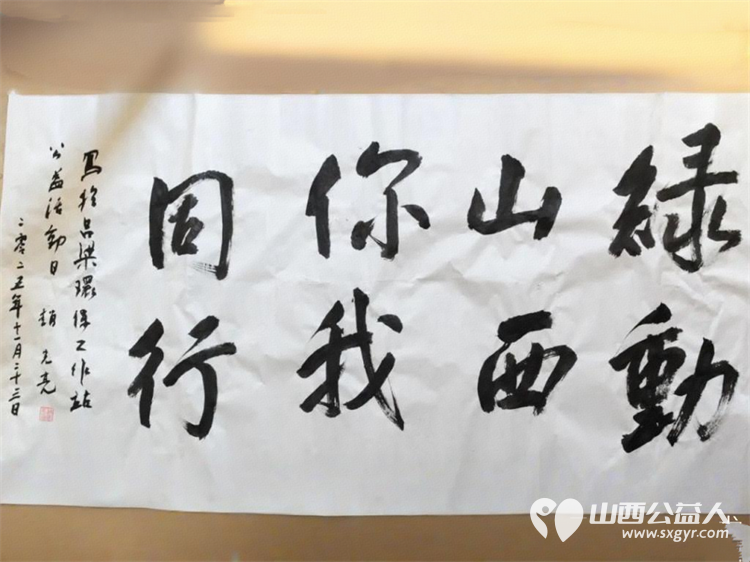 綠動
山西
你我
固行
寫於吕梁環保工作站
公益活動日 趙
二零二五年十一月二十三日
山西公益人
www.sxgyr.com